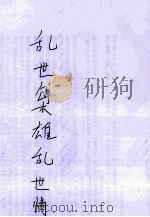 乱世枭雄乱世情